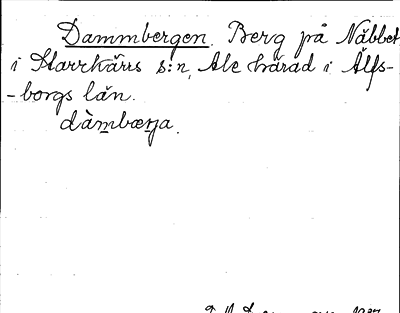 Dammbergen. Berg på Näbbet
i Starrkärrs s:n, Ale härad i Älfs-
-borgs län.
dàmbærja.
1927